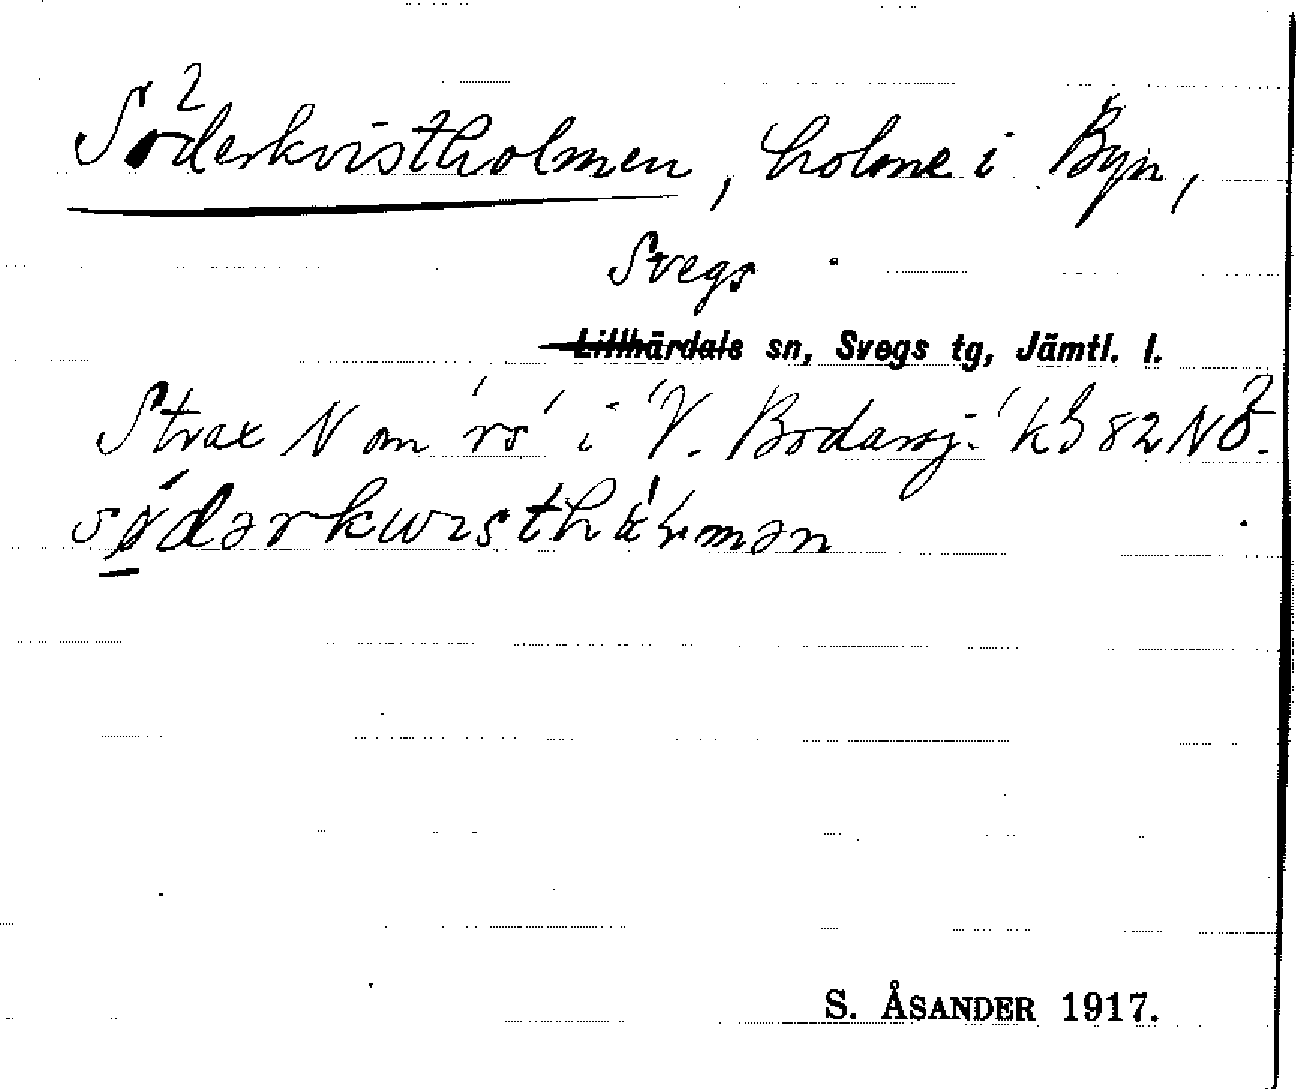 Söderkvistholmen, holme i Byn,
Svegs
Lillhärdals sn, Svegs tg, Jämtl. l.
Strax N om 'rs' i 'V. Bodarsj.' kb 82 NÖ.
södərkwɪsthɑ́ɫmən
S. ÅSANDER 1917.